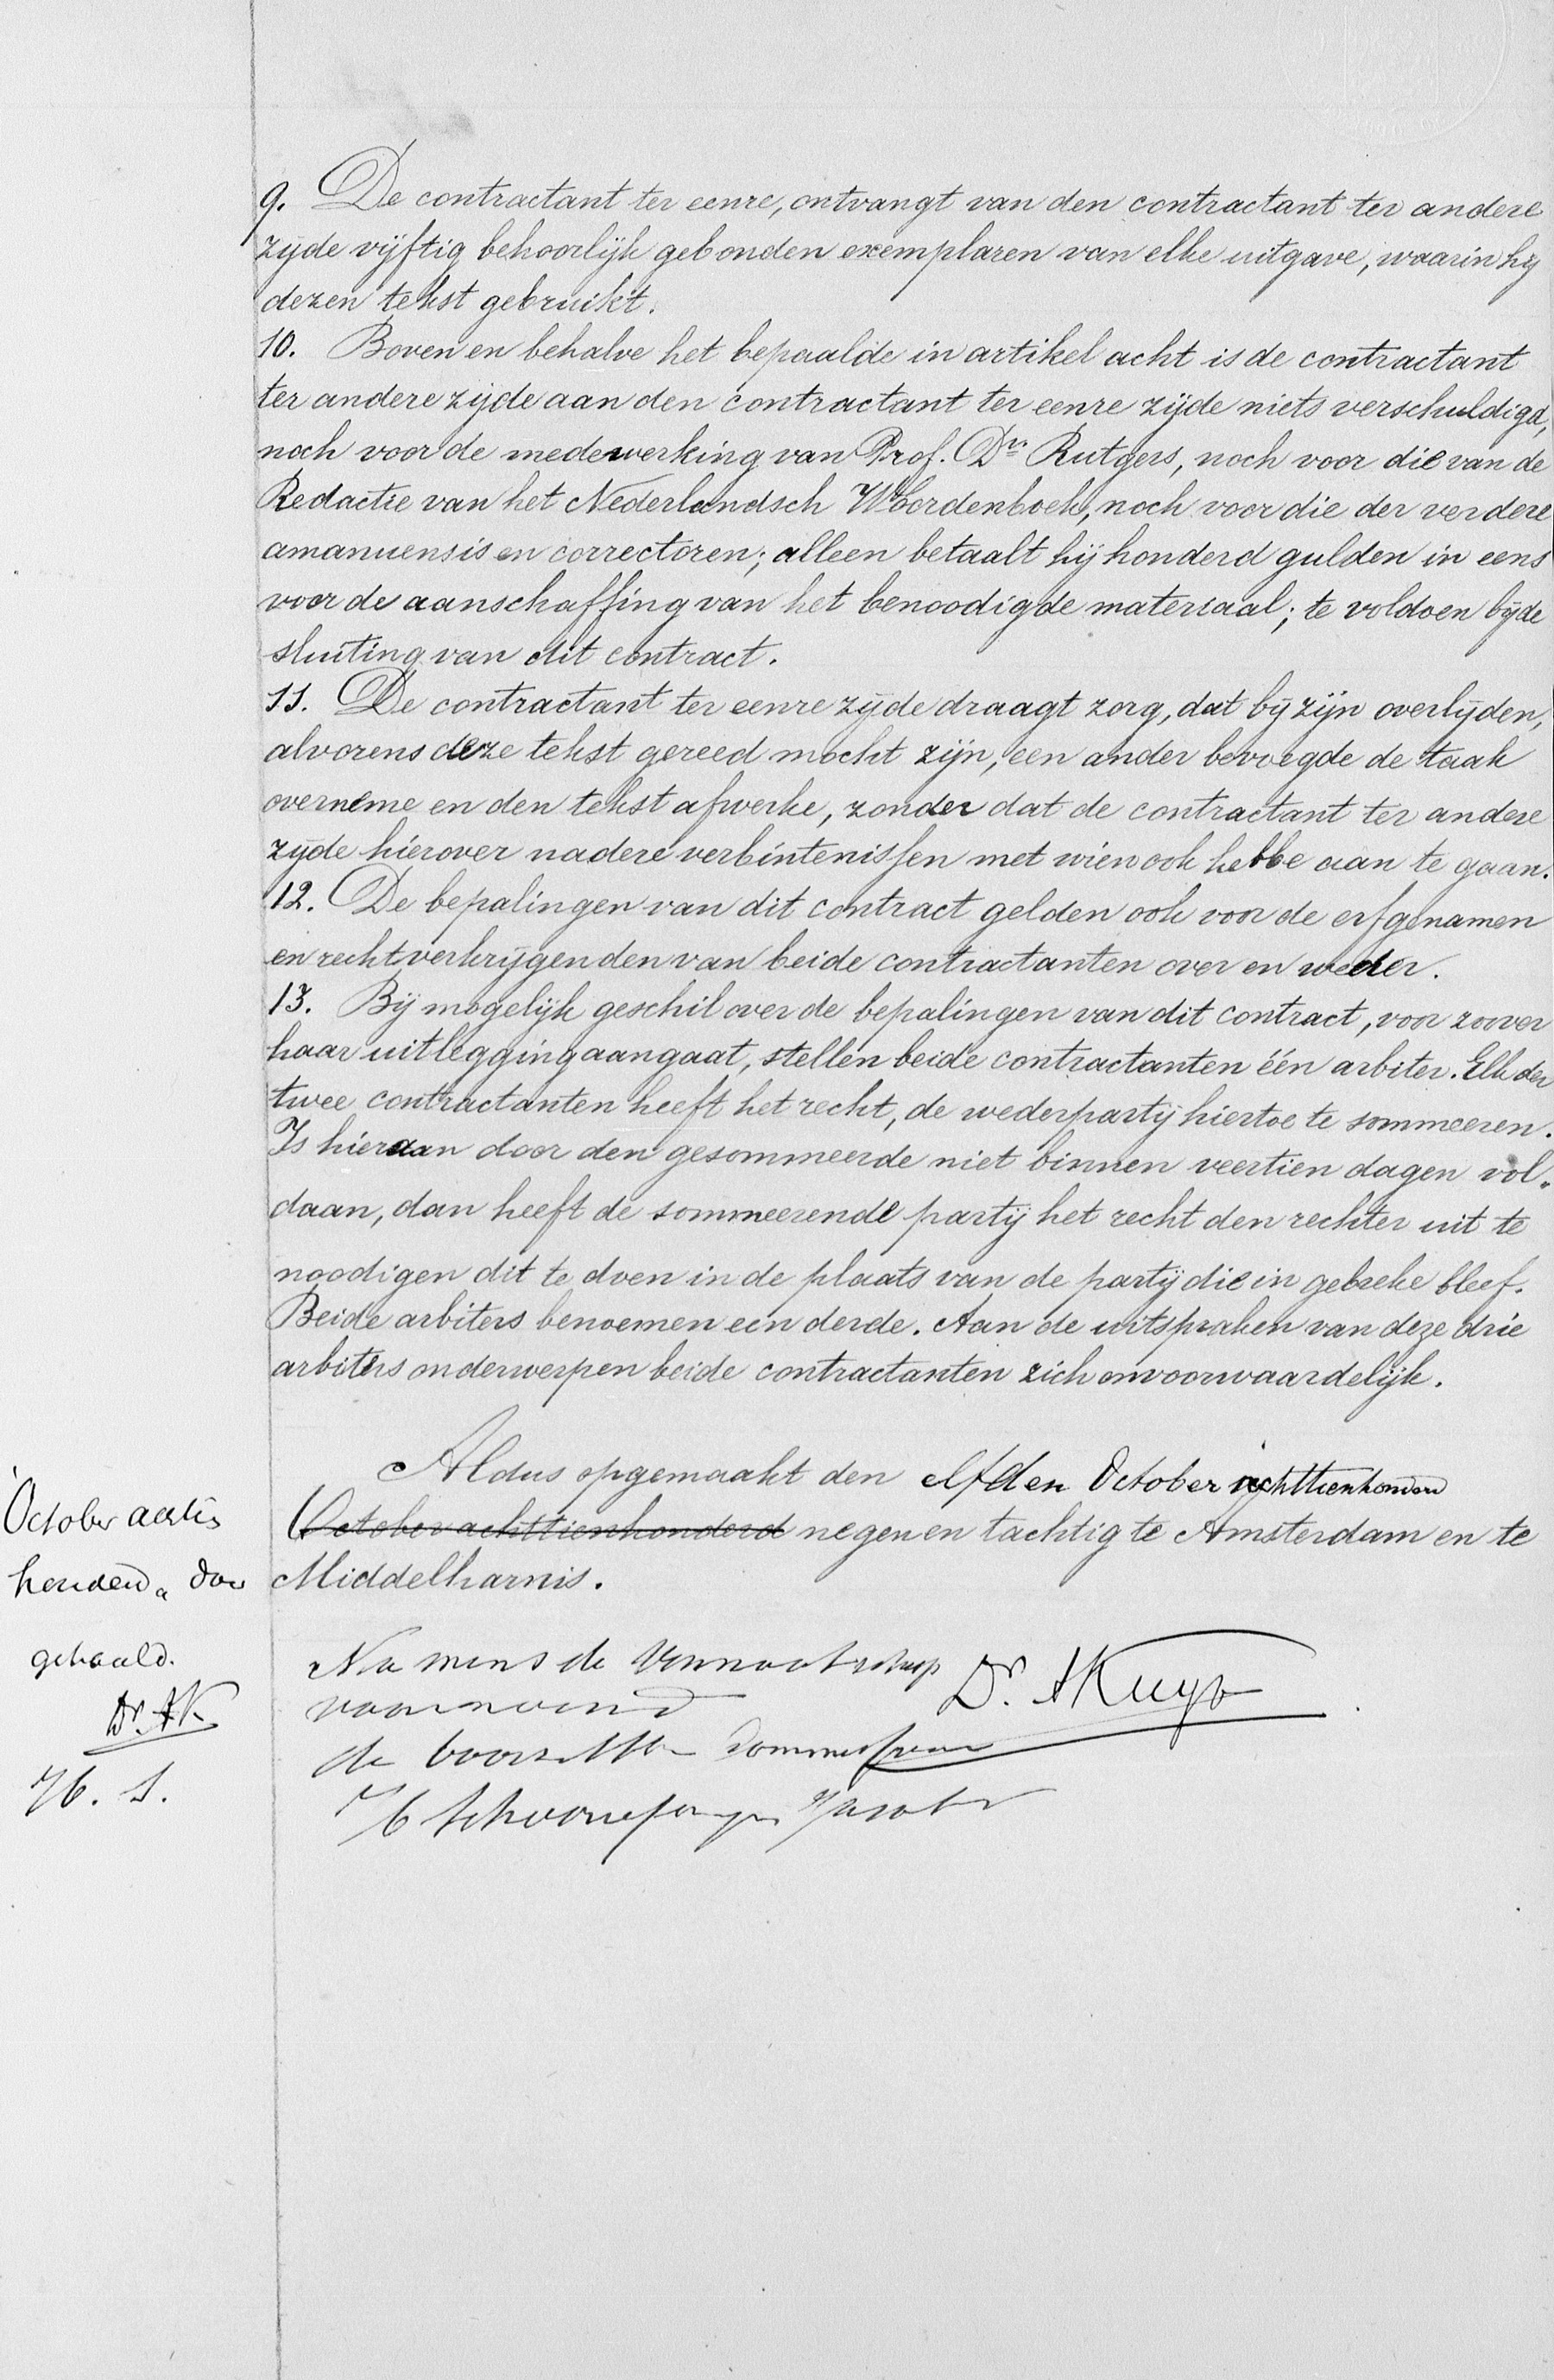 9. De contractant ter eenre, ontvangt van den contractant ter andere
zijde vijftig behoorlijk gebonden exemplaren van elke uitgave, waarin hij
dezen tekst gebruikt.
10. Boven en behalve het bepaalde in artikel acht is de contractant
ter andere zijde aan den contractant ter eenre zijde niets verschuldigd,
noch voor de medewerking van Prof. Dr. Rutgers, noch voor die van de
Redactie van het Nederlandsch Woordenboek, noch voor die der verdere
amanuensis en correctoren; alleen betaalt hij honderd gulden in eens
voor de aanschaffing van het benoodigde materiaal; te voldoen bij de
sluiting van dit contract.
11. De contractant ter eenre zijde draagt zorg, dat bij zijn overlijden,
alvorens deze tekst gereed mocht zijn, een ander bevoegde de taak
overneme en den tekst afwerke, zonder dat de contractant ter andere
zijde hierover nadere verbintenissen met wien ook hebbe aan te gaan.
12. De bepalingen van dit contract gelden ook voor de erfgenamen
en rechtverkrijgenden van beide contractanten over en weder.
13. Bij mogelijk geschil over de bepalingen van dit contract, voor zoover
haar uitlegging aangaat, stellen beide contractanten één arbiter. Elk der
twee contractanten heeft het recht, de wederpartij hiertoe te sommeeren.
Is hieraan door den gesommeerde niet binnen veertien dagen vol-
daan, dan heeft de sommeerende partij het recht den rechter uit te
noodigen dit te doen in de plaats van de partij die in gebreke bleef.
Beide arbiters benoemen een derde. Aan de uitspraken van deze drie
arbiters onderwerpen beide contractanten zich onvoorwaardelijk.
Aldus opgemaakt den elfden October achttienhonderd
October achttienhonderd negen en tachtig te Amsterdam en te
Middelharnis.
October
gehaald.
Dr. AK
Namens de Vennootschap
voornoemd
Dr. AKuyper
de